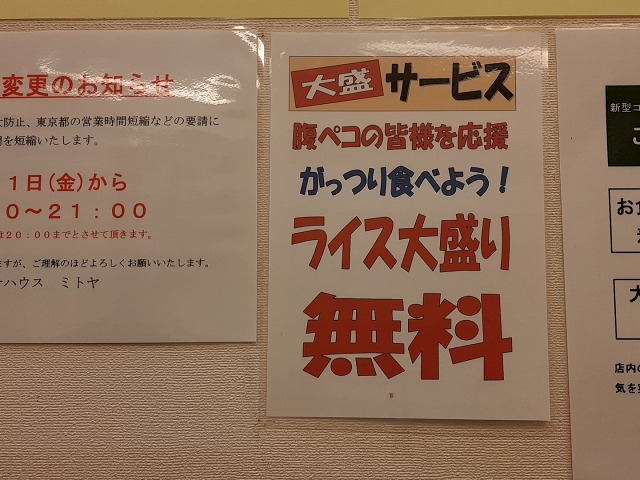 変更のお知らせ
防止、東京都の営業時間短縮などの要請に
を短縮いたします。
1日(金)から
0～21:00
は20:00までとさせて頂きます。
ますが、ご理解のほどよろしくお願いいたします。
ハウス ミトヤ
大盛サービス
腹ペコの皆様を応援
がっつり食べよう!
ライス大盛り
無料
新型コ
お食
店内の
気を